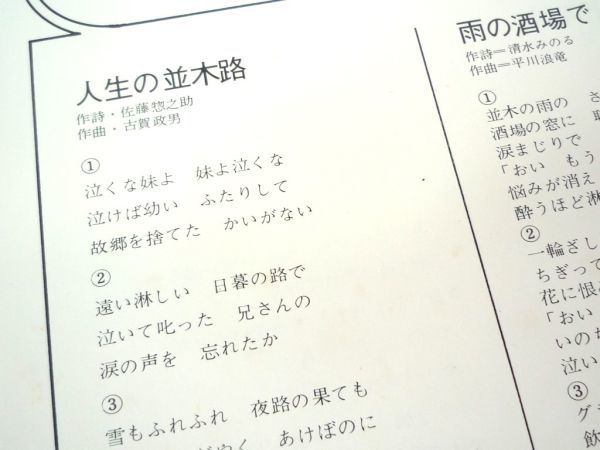 人生の並木路
作詩・佐藤惣之助
作曲・古賀政男
①
泣くな妹よ　妹よ泣くな
泣けば幼い　ふたりして
故郷を捨てた　かいがない
②
遠い淋しい　日暮の路で
泣いて叱った　兄さんの
涙の声を　忘れたか
③
雪もふれふれ　夜路の果ても
あけぼのに
雨の酒場で
作詩＝清水みのる
作曲＝平川浪竜
①
並木の雨の　さ
酒場の窓に
涙まじりで
「おい　もう
悩みが消え
酔うほど淋
②
一輪ざし
ちぎって
花に恨
「おい
いの
泣い
③
グ
飲